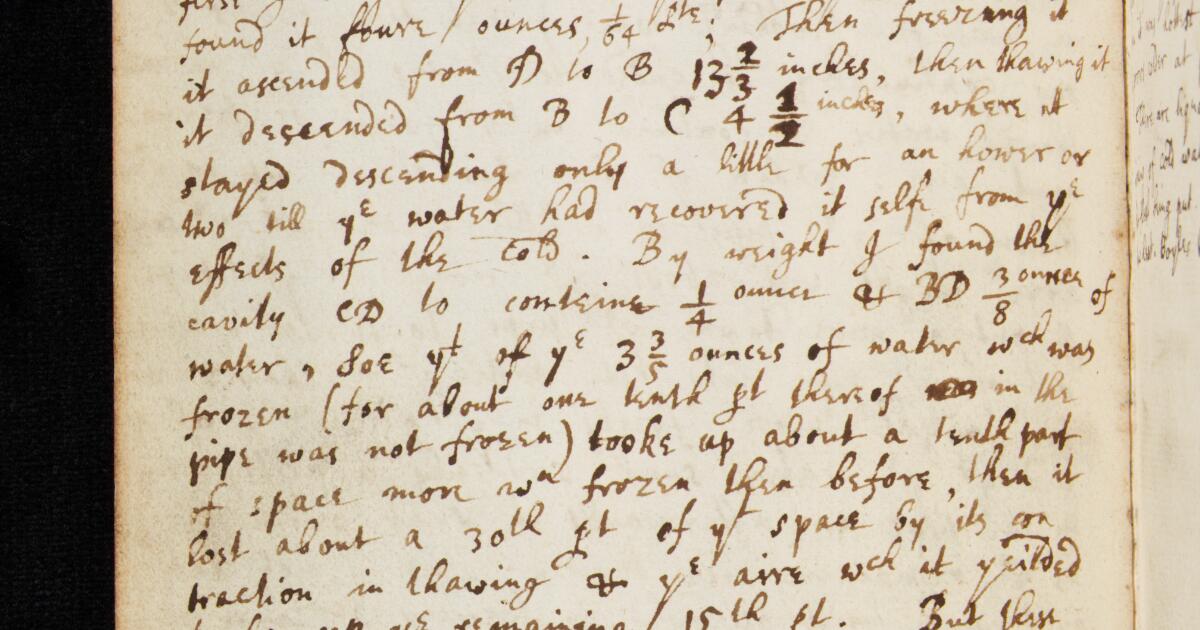 first
found it foure ounces, 1/64 pte. Then freezing it
it ascended from D to B 13 2/3 inches, then thawing it
it descended from B to C 4 1/2 inches, where it
stayed descending only a little for an hower or
two till yᵉ water had recovered it selfe from yᵉ
effects of the cold. By weight I found the
cavity CD to conteine 1/4 ounce & BD 3/8 ounces of
water, Soe yᵗ of yᵉ 3 3/5 ounces of water wᶜʰ was
frozen (for about one tenth pt thereof in the
pipe was not frozen) tooke up about a tenth part
of space more wⁿ frozen then before, then it
lost about a 30th pt of yᵗ space by its con
traction in thawing & yᵉ aire wᶜʰ it yeilded
remaining 15th pt. But these